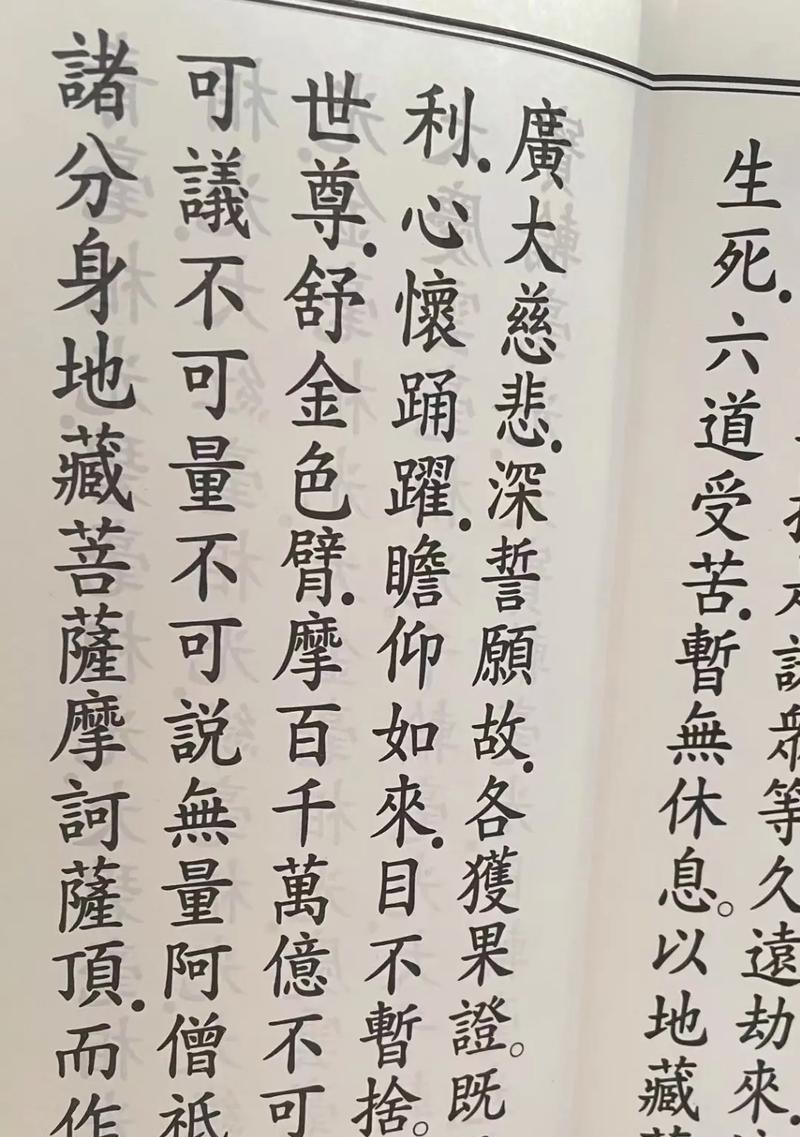 等久遠劫來.
生死.六道受苦.暫無休息。以地藏
廣大慈悲.深誓願故.各獲果證。既
利.心懷踊躍.瞻仰如來.目不暫捨。
世尊.舒金色臂.摩百千萬億不可
可議不可量不可說無量阿僧祇
諸分身地藏菩薩摩訶薩頂.而作